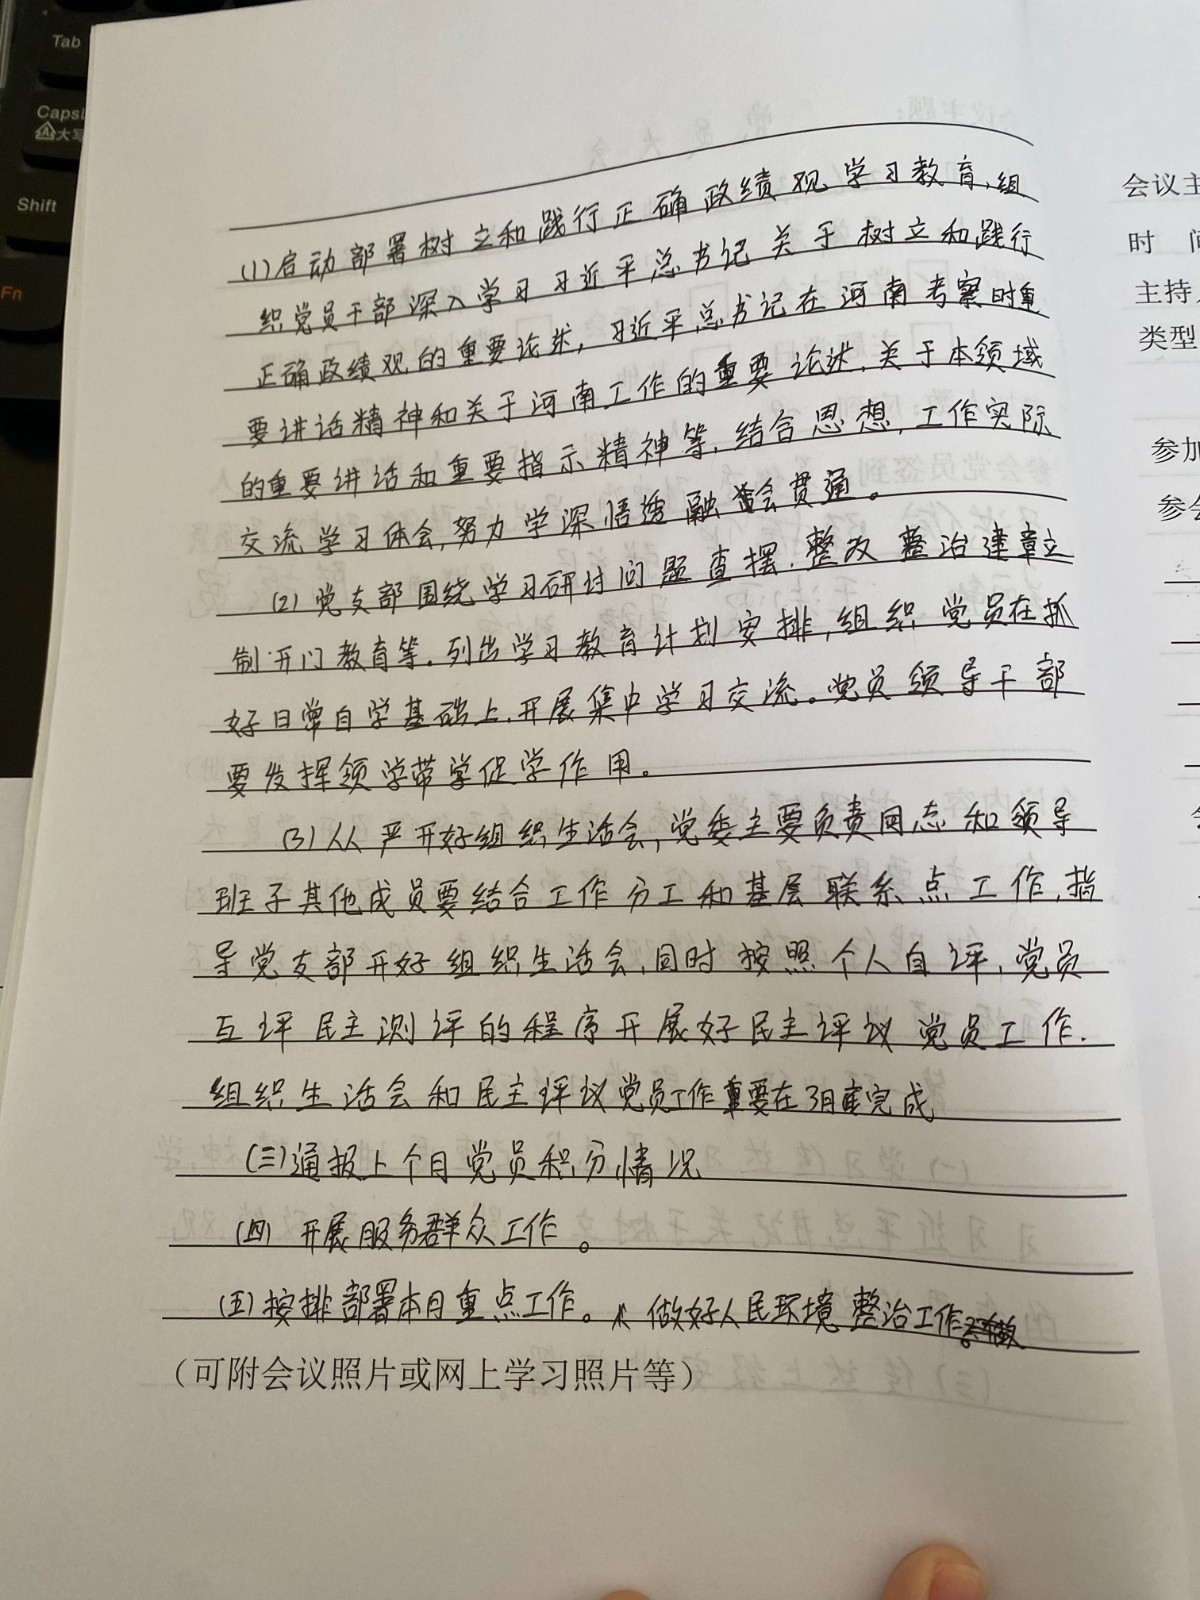 Tab
Caps
大写
Shift
Fn
(1)启动部署树立和践行正确政绩观学习教育,组
织党员干部深入学习习近平总书记关于树立和践行
正确政绩观的重要论述,习近平总书记在河南考察时重
要讲话精神和关于河南工作的重要论述,关于本领域
的重要讲话和重要指示精神等,结合思想,工作实际
交流学习体会,努力学深悟透融会贯通。
(2)党支部围绕学习研讨问题查摆.整改整治建章立
制开门教育等.列出学习教育计划安排,组织党员在抓
好日常自学基础上,开展集中学习交流。党员领导干部
要发挥领学带学促学作用。
(3)从严开好组织生活会,党委主要负责同志和领导
班子其他成员要结合工作分工和基层联系点工作,指
导党支部开好组织生活会,同时按照个人自评,党员
互评民主测评的程序开展好民主评议党员工作.
组织生活会和民主评议党员工作重要在3月底完成
(三)通报上个月党员积分情况
(四)开展服务群众工作。
(五)按排部署本月重点工作。做好人民环境整治工作。
(可附会议照片或网上学习照片等)
会议主
时 间
主持
类型
参加
参会